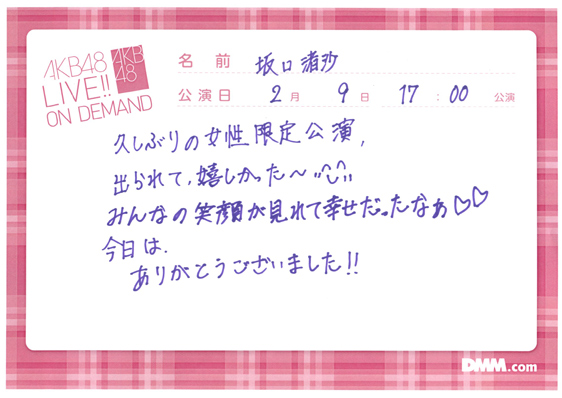 AKB48
LIVE!!
ON DEMAND
AKB
48
名前 坂口渚沙
公演日 2月 9日 17:00 公演
久しぶりの女性限定公演,
出られて、嬉しかった〜
みんなの笑顔が見れて幸せだったなぁ♡♡
今日は、
ありがとうございました!!
DMM.com